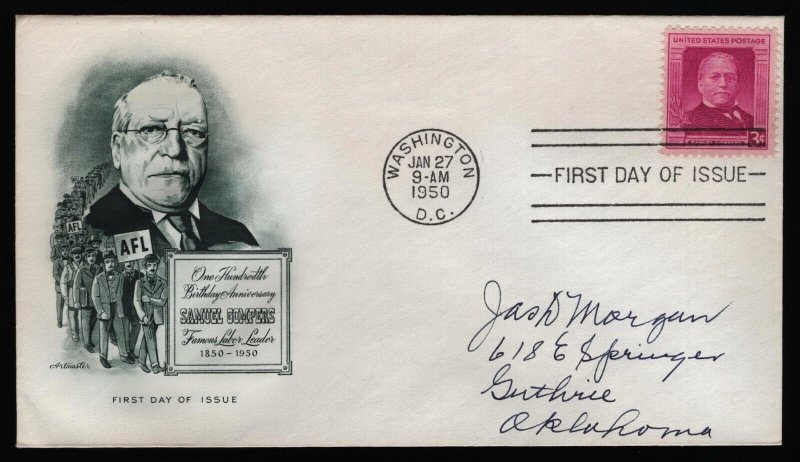 UNITED STATES POSTAGE
3¢
WASHINGTON
JAN 27
9-AM
1950
D.C.
FIRST DAY OF ISSUE
AFL
AFL
One Hundredth
Birthday Anniversary
SAMUEL GOMPERS
Famous Labor Leader
1850-1950
Artmaster
FIRST DAY OF ISSUE
Jas D Morgan
618 E Springer
Guthrie
Oklahoma